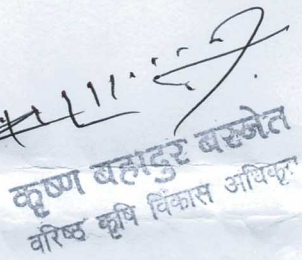 कृष्ण बहादुर बस्नेत
वरिष्ठ कृषि विकास अधिकृत